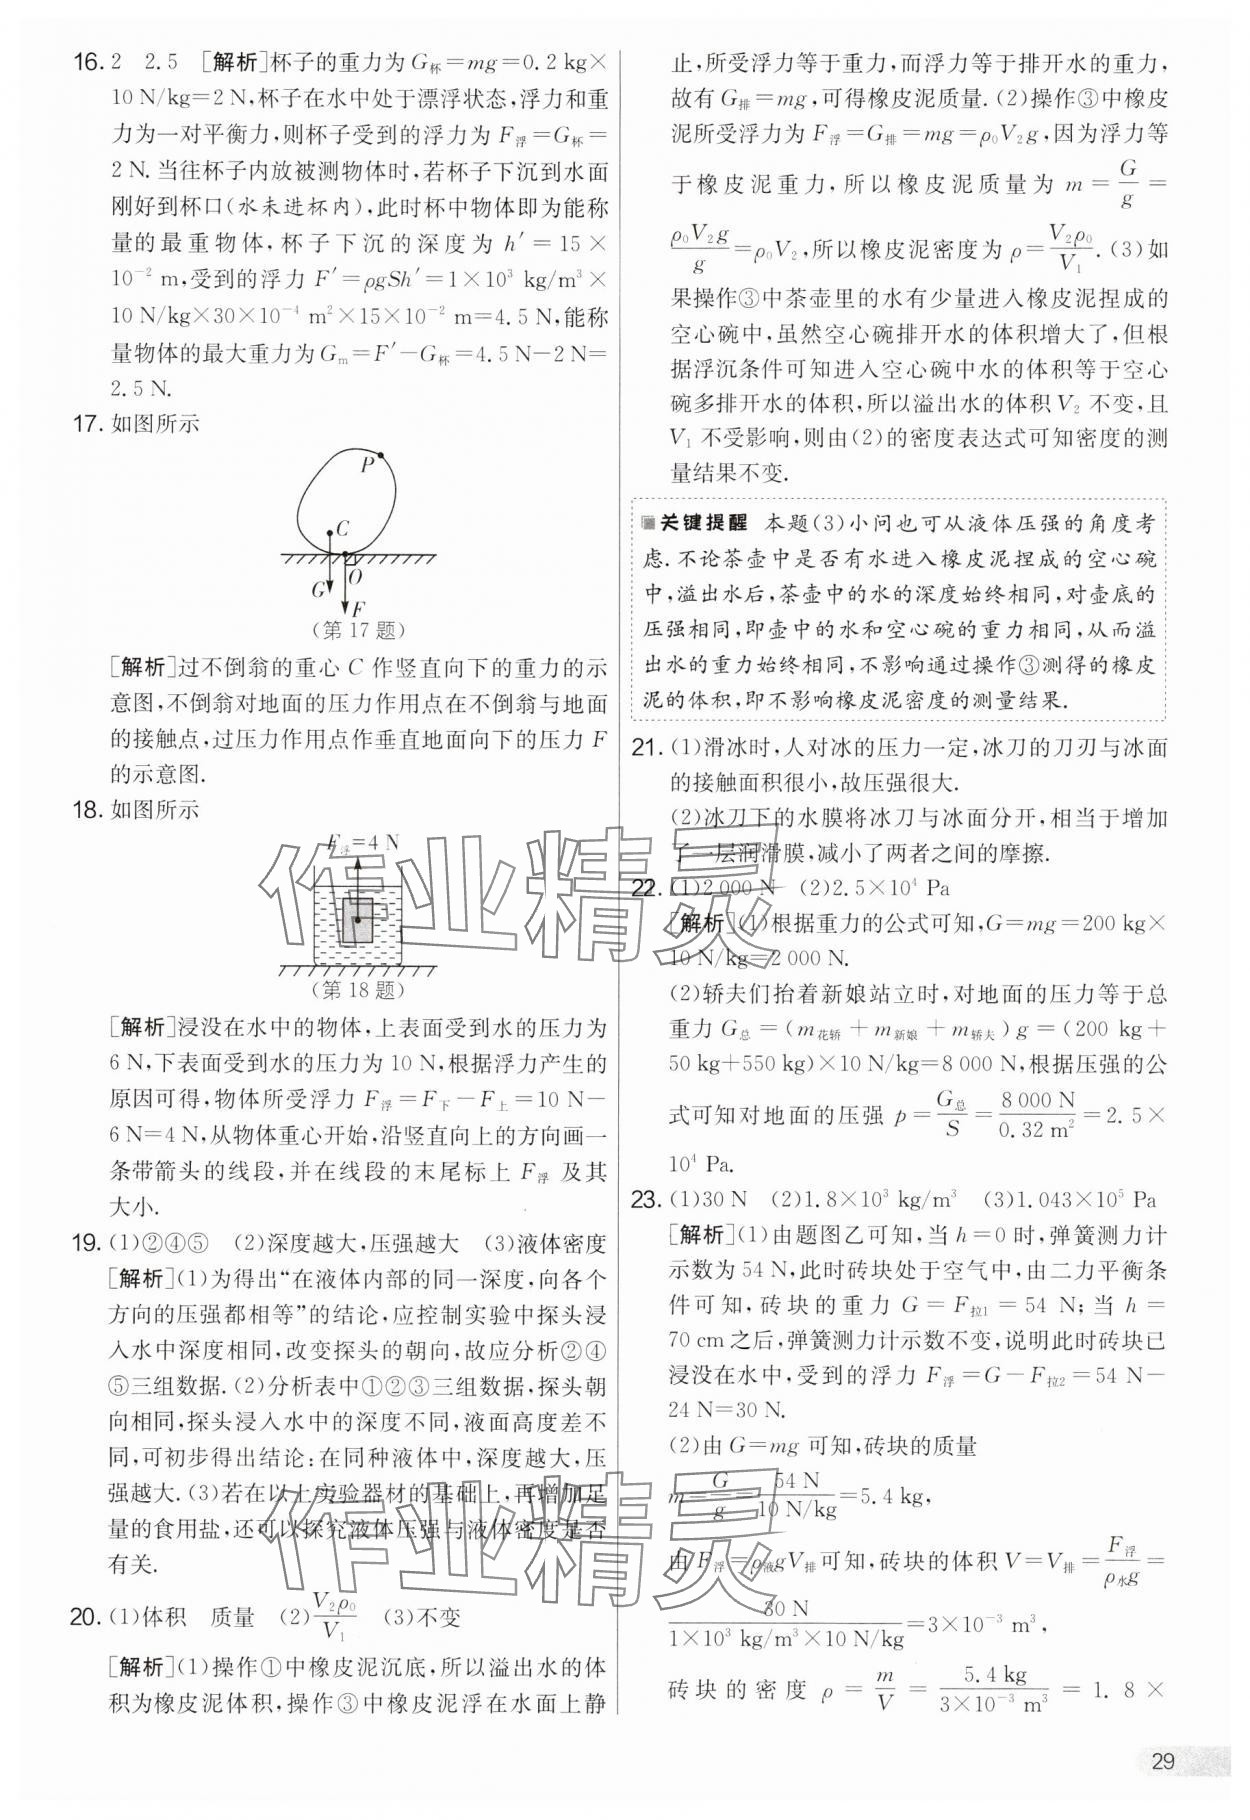 16. 2　2.5　[解析]杯子的重力为 G杯=mg=0.2 kg×
10 N/kg=2 N,杯子在水中处于漂浮状态,浮力和重
力为一对平衡力,则杯子受到的浮力为 F浮=G杯=
2 N. 当往杯子内放被测物体时,若杯子下沉到水面
刚好到杯口(水未进杯内),此时杯中物体即为能称
量的最重物体,杯子下沉的深度为 h′=15×
10⁻² m,受到的浮力 F′=ρgSh′=1×10³ kg/m³×
10 N/kg×30×10⁻⁴ m²×15×10⁻² m=4.5 N,能称
量物体的最大重力为Gm=F′-G杯=4.5 N-2 N=
2.5 N.
17. 如图所示
P
C
O
G
F
(第 17 题)
[解析]过不倒翁的重心 C 作竖直向下的重力的示
意图,不倒翁对地面的压力作用点在不倒翁与地面
的接触点,过压力作用点作垂直地面向下的压力 F
的示意图.
18. 如图所示
F浮=4 N
(第 18 题)
[解析]浸没在水中的物体,上表面受到水的压力为
6 N,下表面受到水的压力为 10 N,根据浮力产生的
原因可得,物体所受浮力 F浮=F下-F上=10 N-
6 N=4 N,从物体重心开始,沿竖直向上的方向画一
条带箭头的线段,并在线段的末尾标上 F浮 及其
大小.
19. (1)②④⑤　(2)深度越大,压强越大　(3)液体密度
[解析](1)为得出“在液体内部的同一深度,向各个
方向的压强都相等”的结论,应控制实验中探头浸
入水中深度相同,改变探头的朝向,故应分析②④
⑤三组数据.(2)分析表中①②③三组数据,探头朝
向相同,探头浸入水中的深度不同,液面高度差不
同,可初步得出结论:在同种液体中,深度越大,压
强越大.(3)若在以上实验器材的基础上,再增加足
量的食用盐,还可以探究液体压强与液体密度是否
有关.
20. (1)体积　质量　(2)V₂ρ₀/V₁　(3)不变
[解析](1)操作①中橡皮泥沉底,所以溢出水的体
积为橡皮泥体积,操作③中橡皮泥浮在水面上静
止,所受浮力等于重力,而浮力等于排开水的重力,
故有 G排=mg,可得橡皮泥质量.(2)操作③中橡皮
泥所受浮力为 F浮=G排=mg=ρ₀V₂g,因为浮力等
于橡皮泥重力,所以橡皮泥质量为 m=G/g=
ρ₀V₂g/g=ρ₀V₂,所以橡皮泥密度为 ρ=V₂ρ₀/V₁.(3)如
果操作③中茶壶里的水有少量进入橡皮泥捏成的
空心碗中,虽然空心碗排开水的体积增大了,但根
据浮沉条件可知进入空心碗中水的体积等于空心
碗多排开水的体积,所以溢出水的体积 V₂ 不变,且
V₁ 不受影响,则由(2)的密度表达式可知密度的测
量结果不变.
关键提醒　本题(3)小问也可从液体压强的角度考
虑.不论茶壶中是否有水进入橡皮泥捏成的空心碗
中,溢出水后,茶壶中的水的深度始终相同,对壶底的
压强相同,即壶中的水和空心碗的重力相同,从而溢
出水的重力始终相同,不影响通过操作③测得的橡皮
泥的体积,即不影响橡皮泥密度的测量结果.
21. (1)滑冰时,人对冰的压力一定,冰刀的刀刃与冰面
的接触面积很小,故压强很大.
(2)冰刀下的水膜将冰刀与冰面分开,相当于增加
了一层润滑膜,减小了两者之间的摩擦.
22. (1)2 000 N　(2)2.5×10⁴ Pa
[解析](1)根据重力的公式可知,G=mg=200 kg×
10 N/kg=2 000 N.
(2)轿夫们抬着新娘站立时,对地面的压力等于总
重力 G总=(m花轿+m新娘+m轿夫)g=(200 kg+
50 kg+550 kg)×10 N/kg=8 000 N,根据压强的公
式可知对地面的压强 p=G总/S=8 000 N/0.32 m²=2.5×
10⁴ Pa.
23. (1)30 N　(2)1.8×10³ kg/m³　(3)1.043×10⁵ Pa
[解析](1)由题图乙可知,当 h=0 时,弹簧测力计
示数为 54 N,此时砖块处于空气中,由二力平衡条
件可知,砖块的重力 G=F拉1=54 N;当 h=
70 cm 之后,弹簧测力计示数不变,说明此时砖块已
浸没在水中,受到的浮力 F浮=G-F拉2=54 N-
24 N=30 N.
(2)由 G=mg 可知,砖块的质量
m=G/g=54 N/10 N/kg=5.4 kg,
由 F浮=ρ液gV排可知,砖块的体积 V=V排=F浮/ρ水g=
30 N/1×10³ kg/m³×10 N/kg=3×10⁻³ m³,
砖块的密度 ρ=m/V=5.4 kg/3×10⁻³ m³=1.8×
作业精灵
作业精灵
29